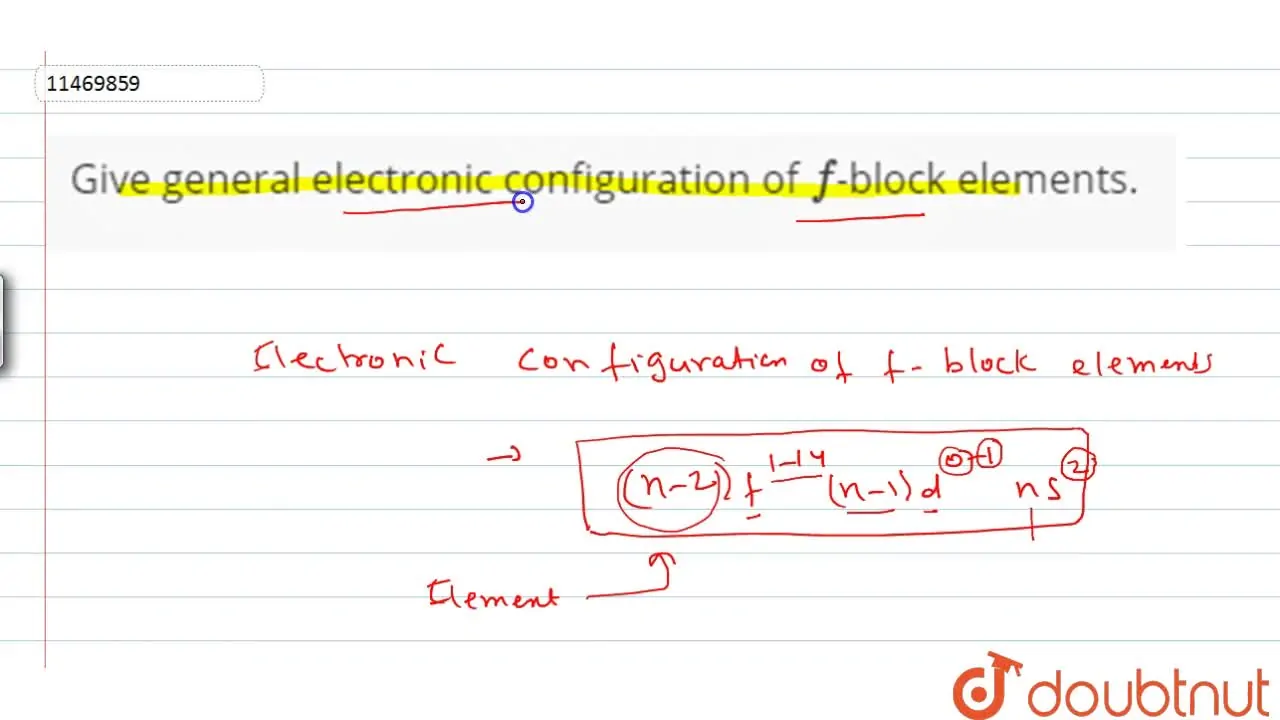 11469859
Give general electronic configuration of f-block elements.
Electronic configuration of f- block elements
→ (n-2) f¹⁻¹⁴ (n-1) d⁰⁻¹ ns²
Element
doubtnut